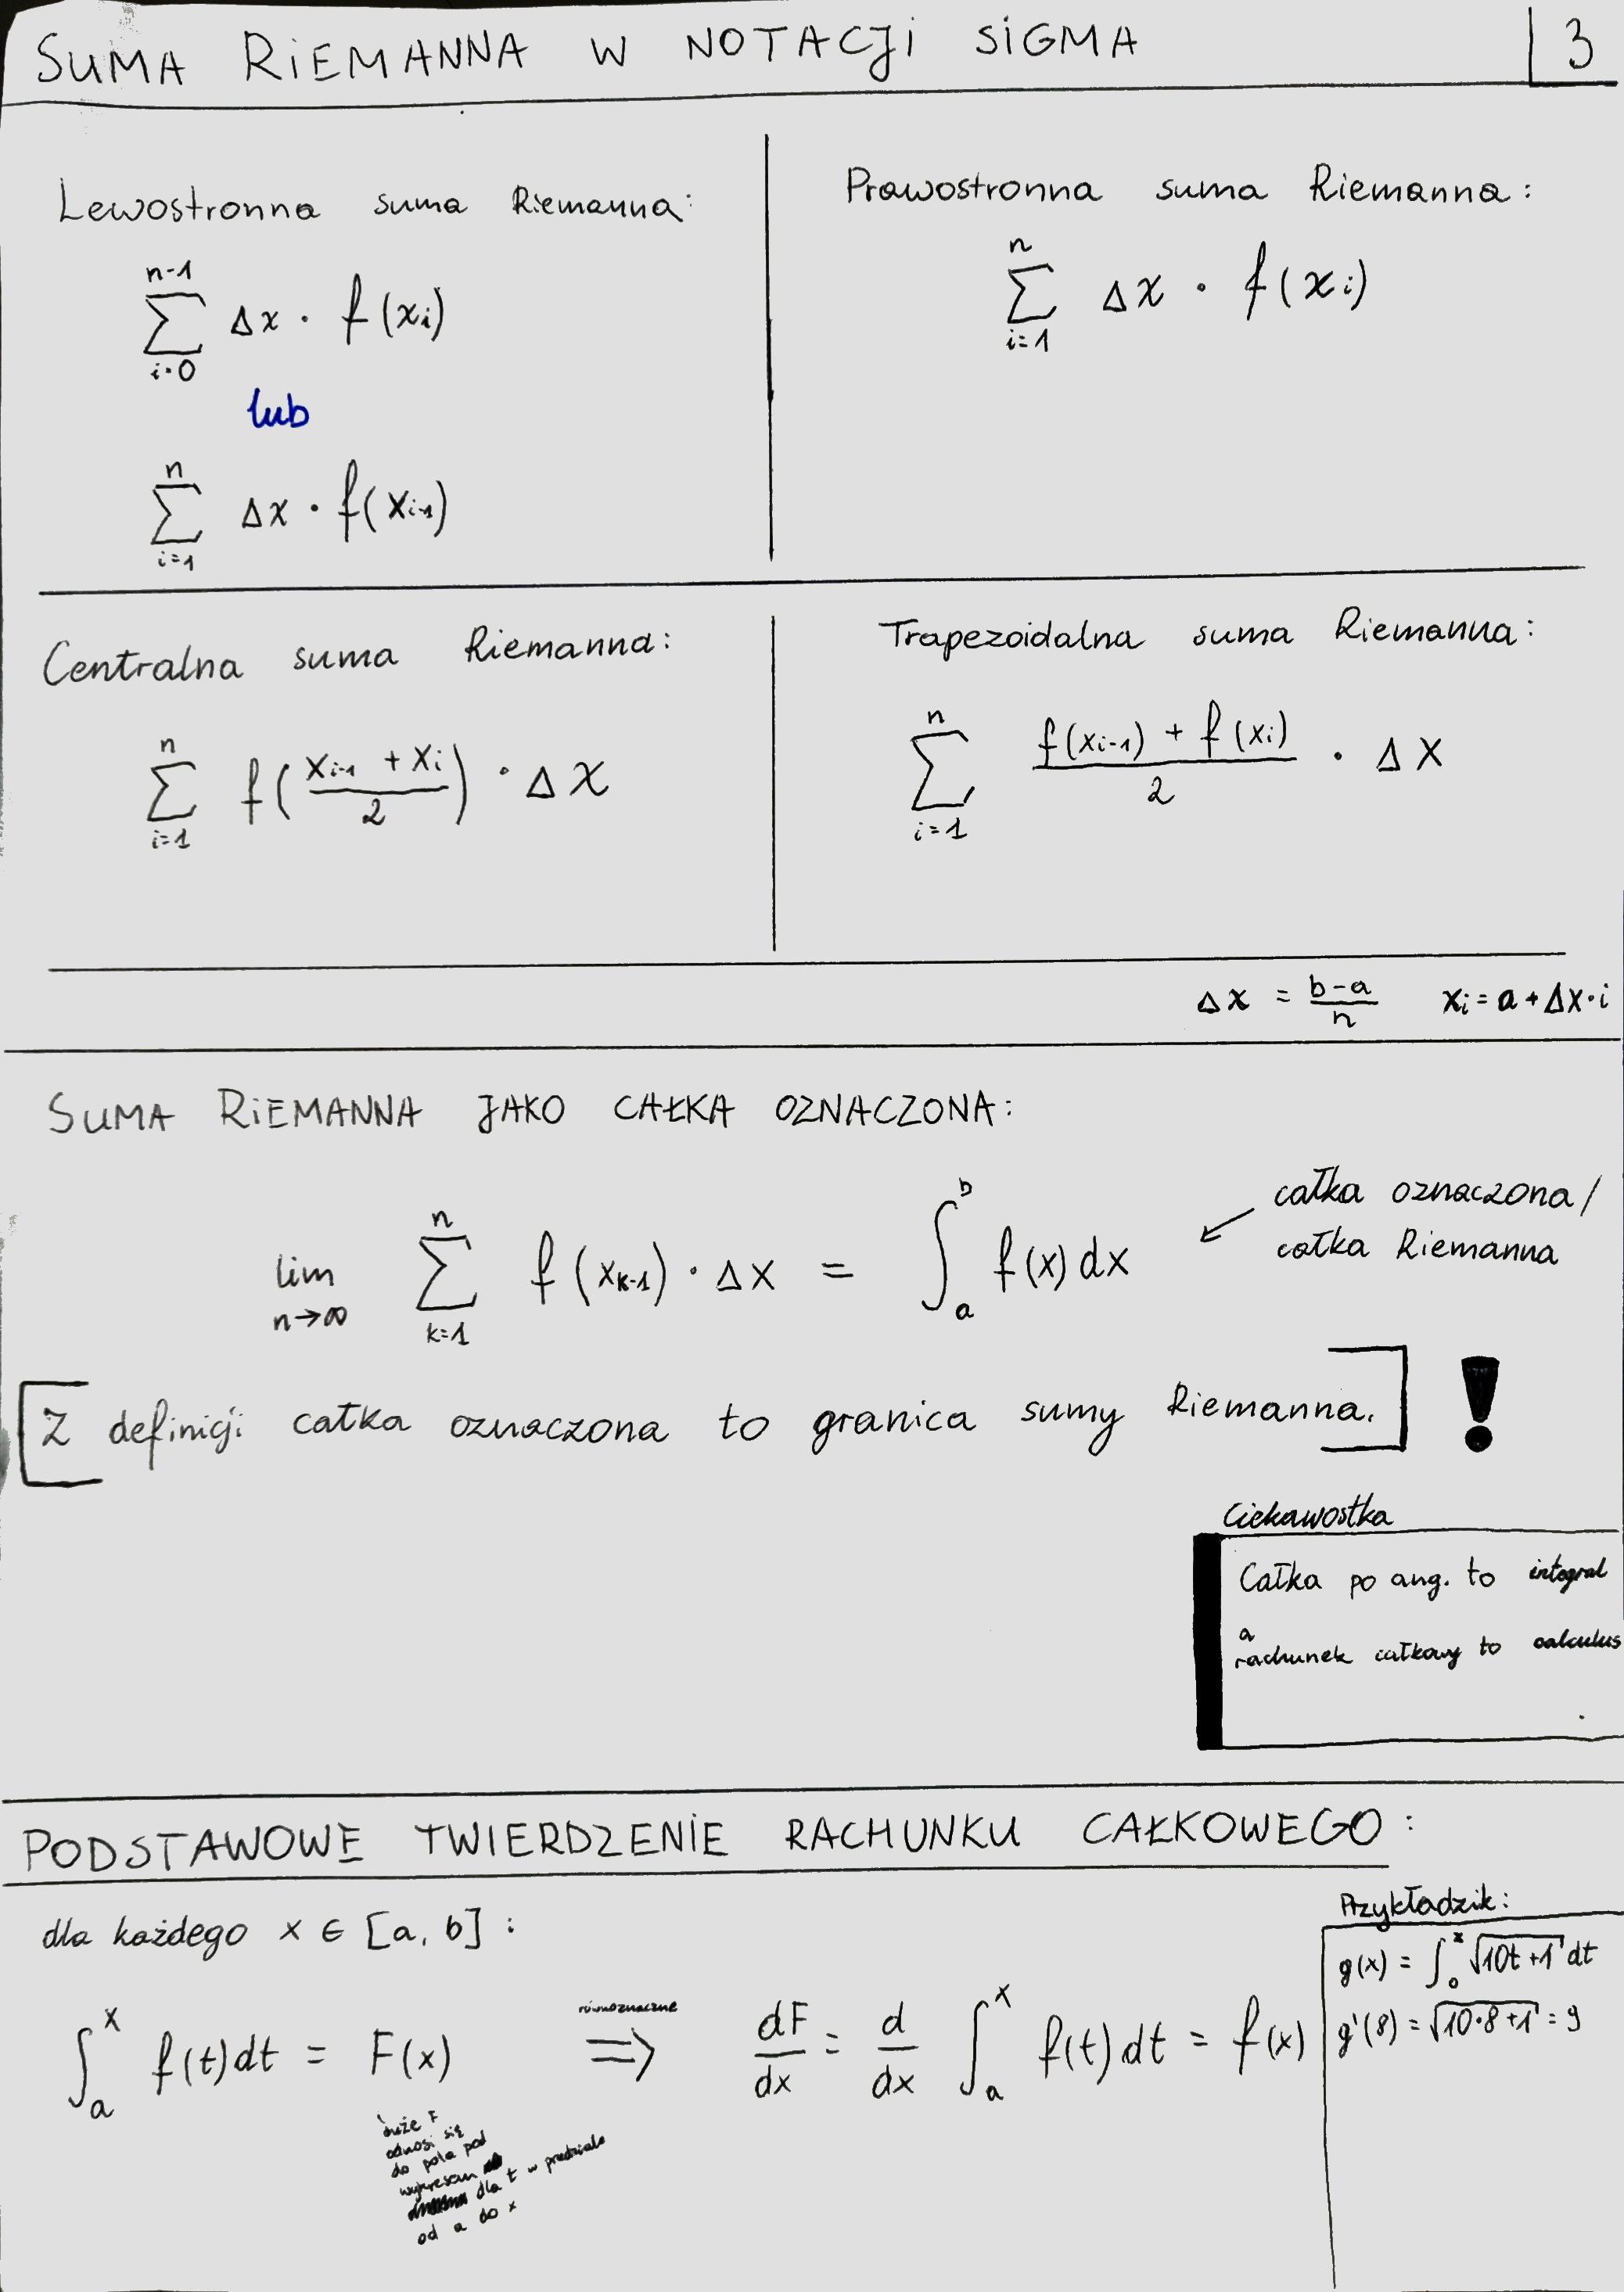 SUMA RIEMANNA W NOTACJI SIGMA
3
Lewostronna suma Riemanna:
n-1
∑ Δx · f(xᵢ)
i=0
lub
n
∑ Δx · f(xᵢ₋₁)
i=1
Prawostronna suma Riemanna:
n
∑ Δx · f(xᵢ)
i=1
Centralna suma Riemanna:
n
∑ f((xᵢ₋₁ + xᵢ)/2) · Δx
i=1
Trapezoidalna suma Riemanna:
n
∑ (f(xᵢ₋₁) + f(xᵢ))/2 · Δx
i=1
Δx = (b-a)/n xᵢ = a + Δx·i
SUMA RIEMANNA JAKO CAŁKA OZNACZONA:
lim n→∞ ∑ₖ₌₁ⁿ f(xₖ₋₁) · Δx = ∫ₐᵇ f(x) dx
całka oznaczona/
całka Riemanna
[Z definicji całka oznaczona to granica sumy Riemanna.] !
Ciekawostka
Całka po ang. to integral
a
rachunek całkowy to calculus
PODSTAWOWE TWIERDZENIE RACHUNKU CAŁKOWEGO:
dla każdego x ∈ [a, b]:
∫ₐˣ f(t) dt = F(x) równoznaczne ⇒ dF/dx = d/dx ∫ₐˣ f(t) dt = f(x)
duże F
odnosi się
do pola pod
wykresem
dla t w przedziale
od a do x
Przykładzik:
g(x) = ∫₀ˣ √(10t+1) dt
g'(8) = √(10·8+1) = 9